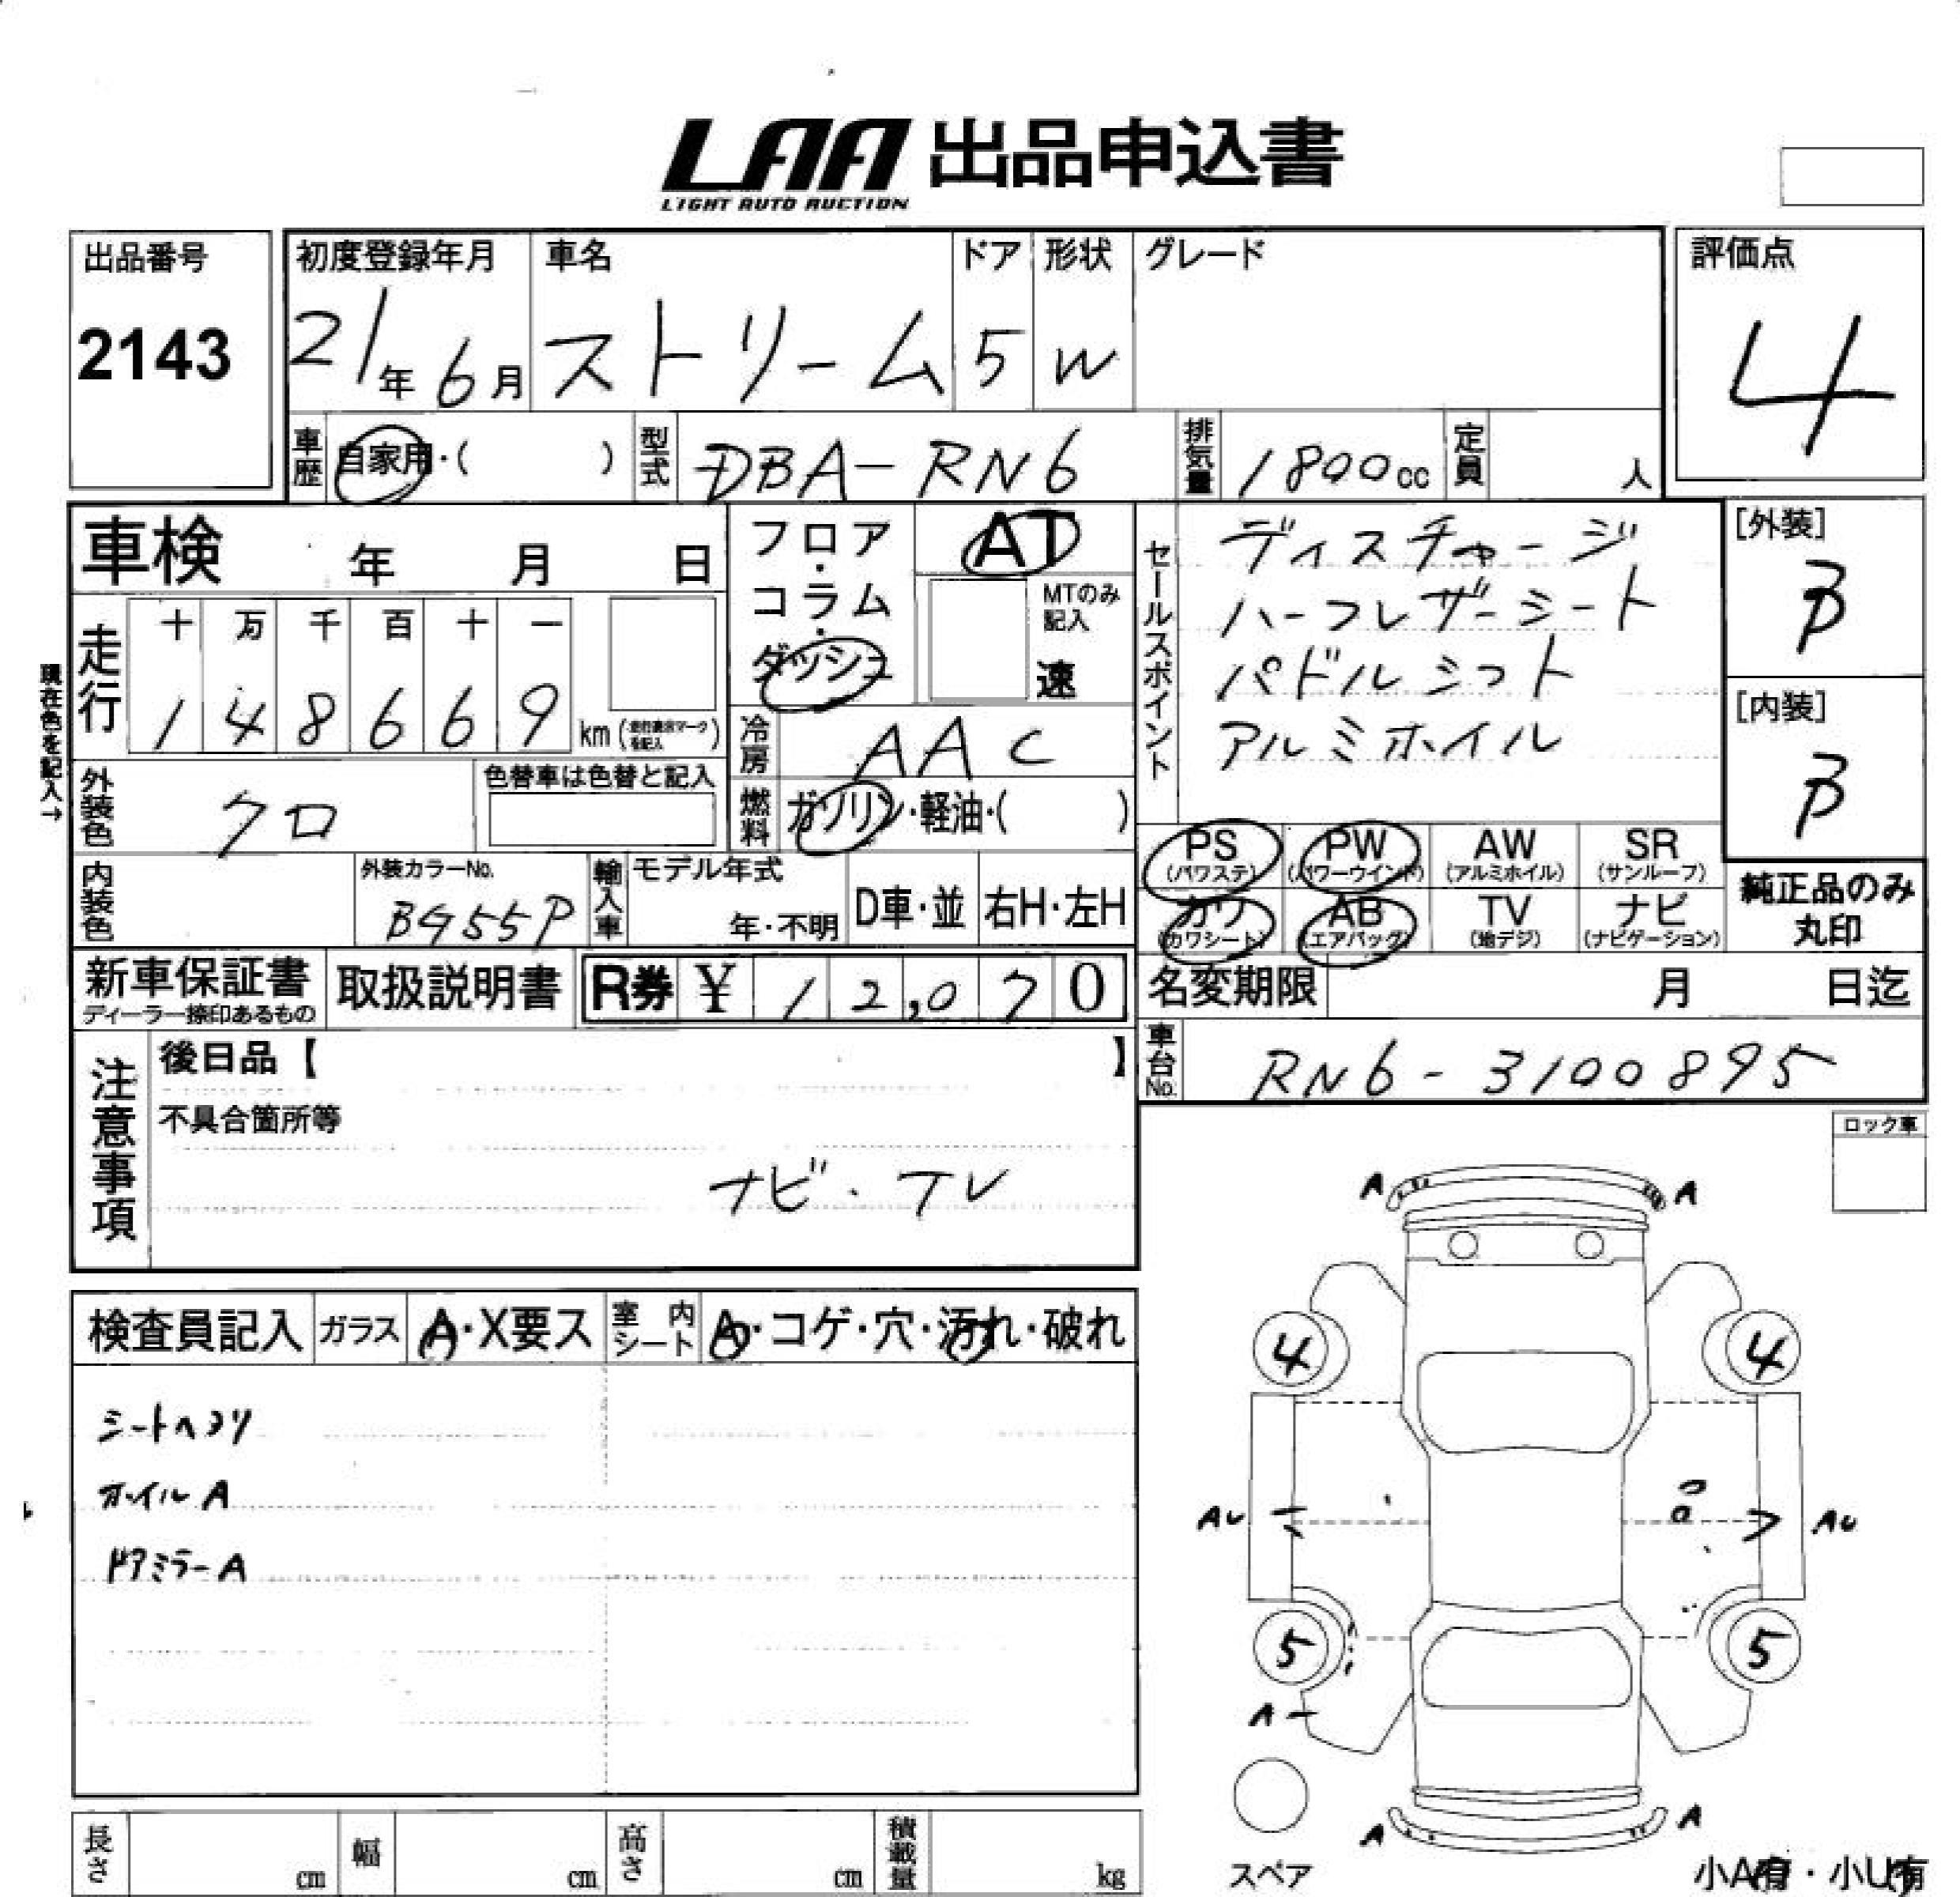 LAA 出品申込書
LIGHT AUTO AUCTION
出品番号
2143
初度登録年月
21年6月
車名
ストリーム
ドア
5
形状
W
グレード
評価点
4
車歴 自家用・( )
型式 DBA-RN6
排気量 1800cc
定員 人
車検 年 月 日
走行
十 万 千 百 十 一
1 4 8 6 6 9 km
現在色を記入→
フロア・コラム・ダッシュ
AT
MTのみ記入
速
冷房 AAC
燃料 ガソリン・軽油・( )
セールスポイント
ディスチャージ
ハーフレザーシート
パドルシフト
アルミホイル
[外装]
B
[内装]
B
外装色 クロ
色替車は色替と記入
内装色
外装カラーNo.
B955P
輸入車
モデル年式
年・不明
D車・並
右H・左H
PS
(パワステ)
PW
(パワーウインド)
AW
(アルミホイル)
SR
(サンルーフ)
カワ
(カワシート)
AB
(エアバッグ)
TV
(地デジ)
ナビ
(ナビゲーション)
純正品のみ
丸印
新車保証書
ディーラー捺印あるもの
取扱説明書
R券 ¥ 12,070
名変期限 月 日迄
車台No. RN6-3100895
注意事項
後日品【 】
不具合箇所等
ナビ・TV
ロック車
検査員記入
ガラス A・X要ス
室内シート A・コゲ・穴・汚れ・破れ
シートヘコリ
ホイルA
ドアミラーA
A A
4 4
AU AU
5 5
A
A A
スペア
小A有・小U有
長さ cm
幅 cm
高さ cm
積載量 kg